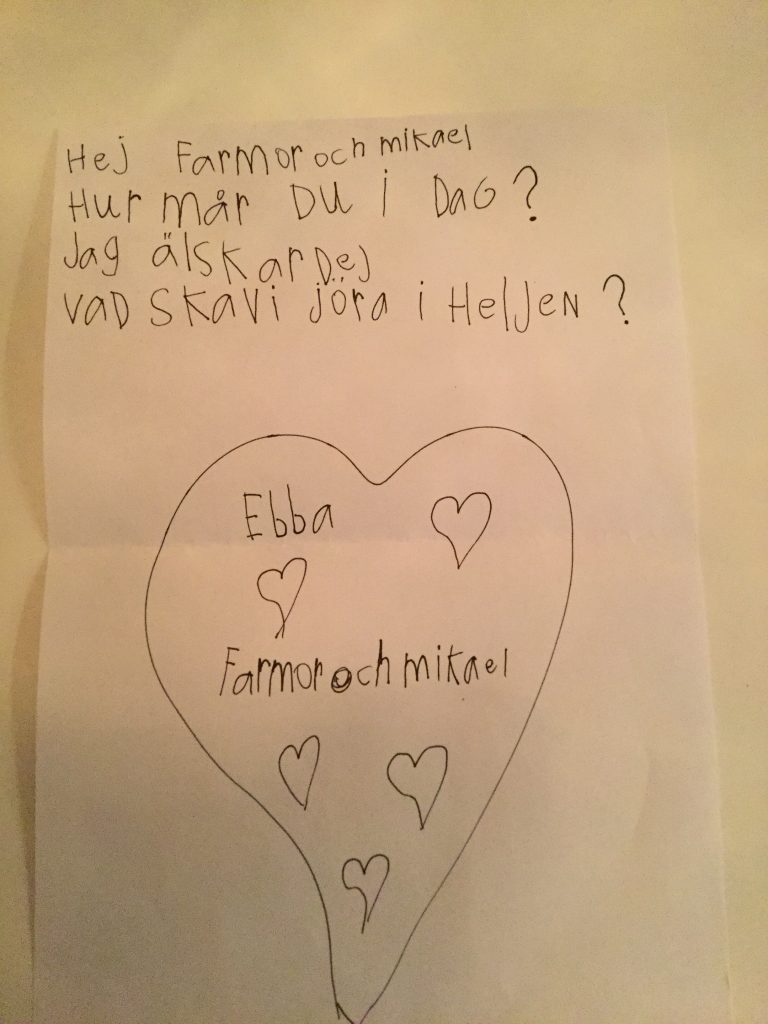 Hej Farmor och mikael
Hur mår Du i DaG?
Jag älskar Dej
vaD skavi jöra i HelJeN?
Ebba
Farmor och mikael